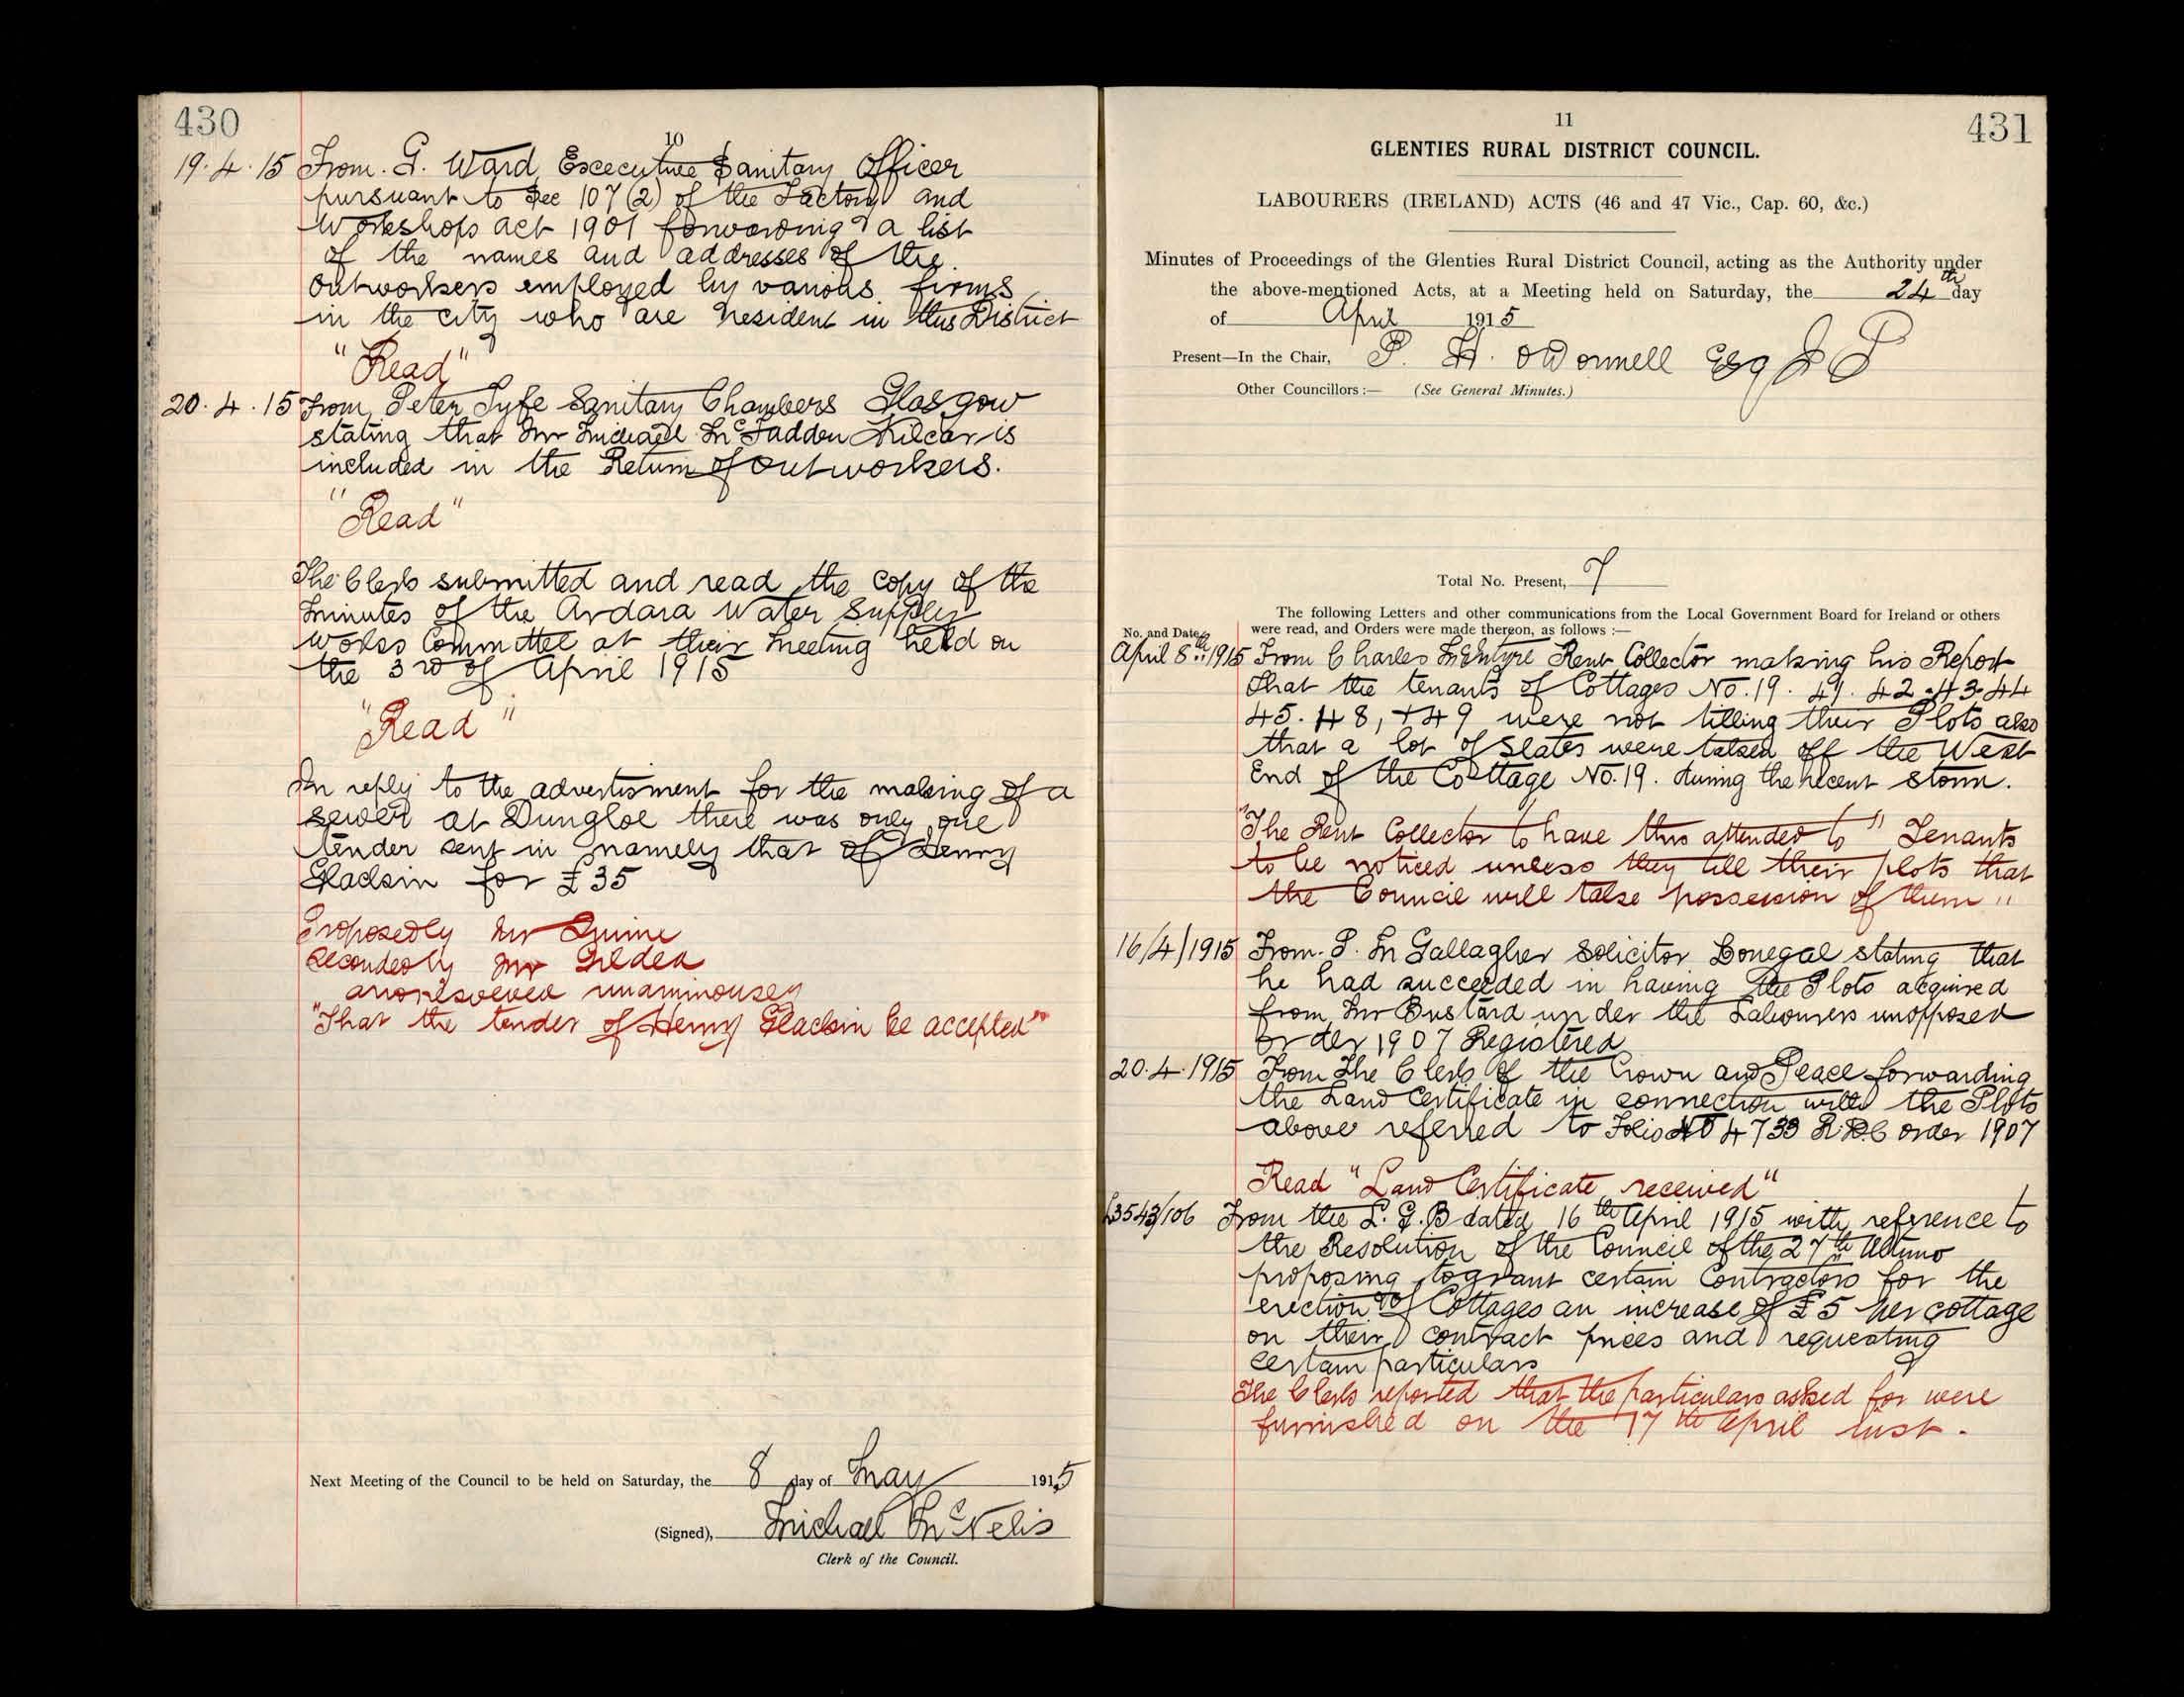 430
10
19.4.15 From. G. Ward Excecutive Sanitary Officer
pursuant to Sec 107(2) of the Factory and
Workshops act 1901 forwarding a list
of the names and addresses of the
Outworkers employed by various firms
in the city who are resident in this District
"Read"
20.4.15 From Peter Fyfe Sanitary Chambers Glasgow
stating that Mr Michael McFadden Kilcar is
included in the Return of outworkers.
"Read"
The Clerk submitted and read the copy of the
minutes of the Ardara Water Supply
Works Committee at their meeting held on
the 3rd of April 1915
"Read"
In reply to the advertisment for the making of a
sewer at Dungloe there was only one
tender sent in namely that of Henry
Glackin for £35
Proposed by Mr
Seconded by Mr Gildea
and resolved unaminously
"That the tender of Henry Glackin be accepted"
Next Meeting of the Council to be held on Saturday, the 8 day of May 1915
(Signed), Michael McNelis
Clerk of the Council.
11
431
GLENTIES RURAL DISTRICT COUNCIL.
LABOURERS (IRELAND) ACTS (46 and 47 Vic., Cap. 60, &c.)
Minutes of Proceedings of the Glenties Rural District Council, acting as the Authority under
the above-mentioned Acts, at a Meeting held on Saturday, the 24th day
of April 1915
Present—In the Chair, P. H. O'Donnell Esq J P
Other Councillors:— (See General Minutes.)
Total No. Present, 7
The following Letters and other communications from the Local Government Board for Ireland or others
No. and Date. were read, and Orders were made thereon, as follows :—
April 8th 1915 From Charles McEntyre Rent Collector making his Report
that the tenants of Cottages No. 19. 41. 42. 43. 44
45. 48, + 49 were not tilling their Plots also
that a lot of slates were taken off the West
End of the Cottage No. 19. during the recent storm.
"The Rent Collector to have this attended to" Tenants
to be noticed unless they till their plots that
the Council will take possession of them"
16/4/1915 From. P. M Gallagher Solicitor Donegal stating that
he had succeeded in having the Plots acquired
from Mr Bustard under the Labourers unopposed
order 1907 Registered
20.4.1915 From The Clerk of the Crown and Peace forwarding
the Land Certificate in connection with the Plots
above referred to Folio No 4733 R.D.C order 1907
Read "Land Certificate received"
L3543/106 From the L. G. B dated 16th April 1915 with reference to
the Resolution of the Council of the 27th Ultimo
proposing to grant certain Contractors for the
erection of Cottages an increase of £5 per cottage
on their contract prices and requesting
certain particulars
The Clerk reported that the particulars asked for were
furnished on the 17th April inst.